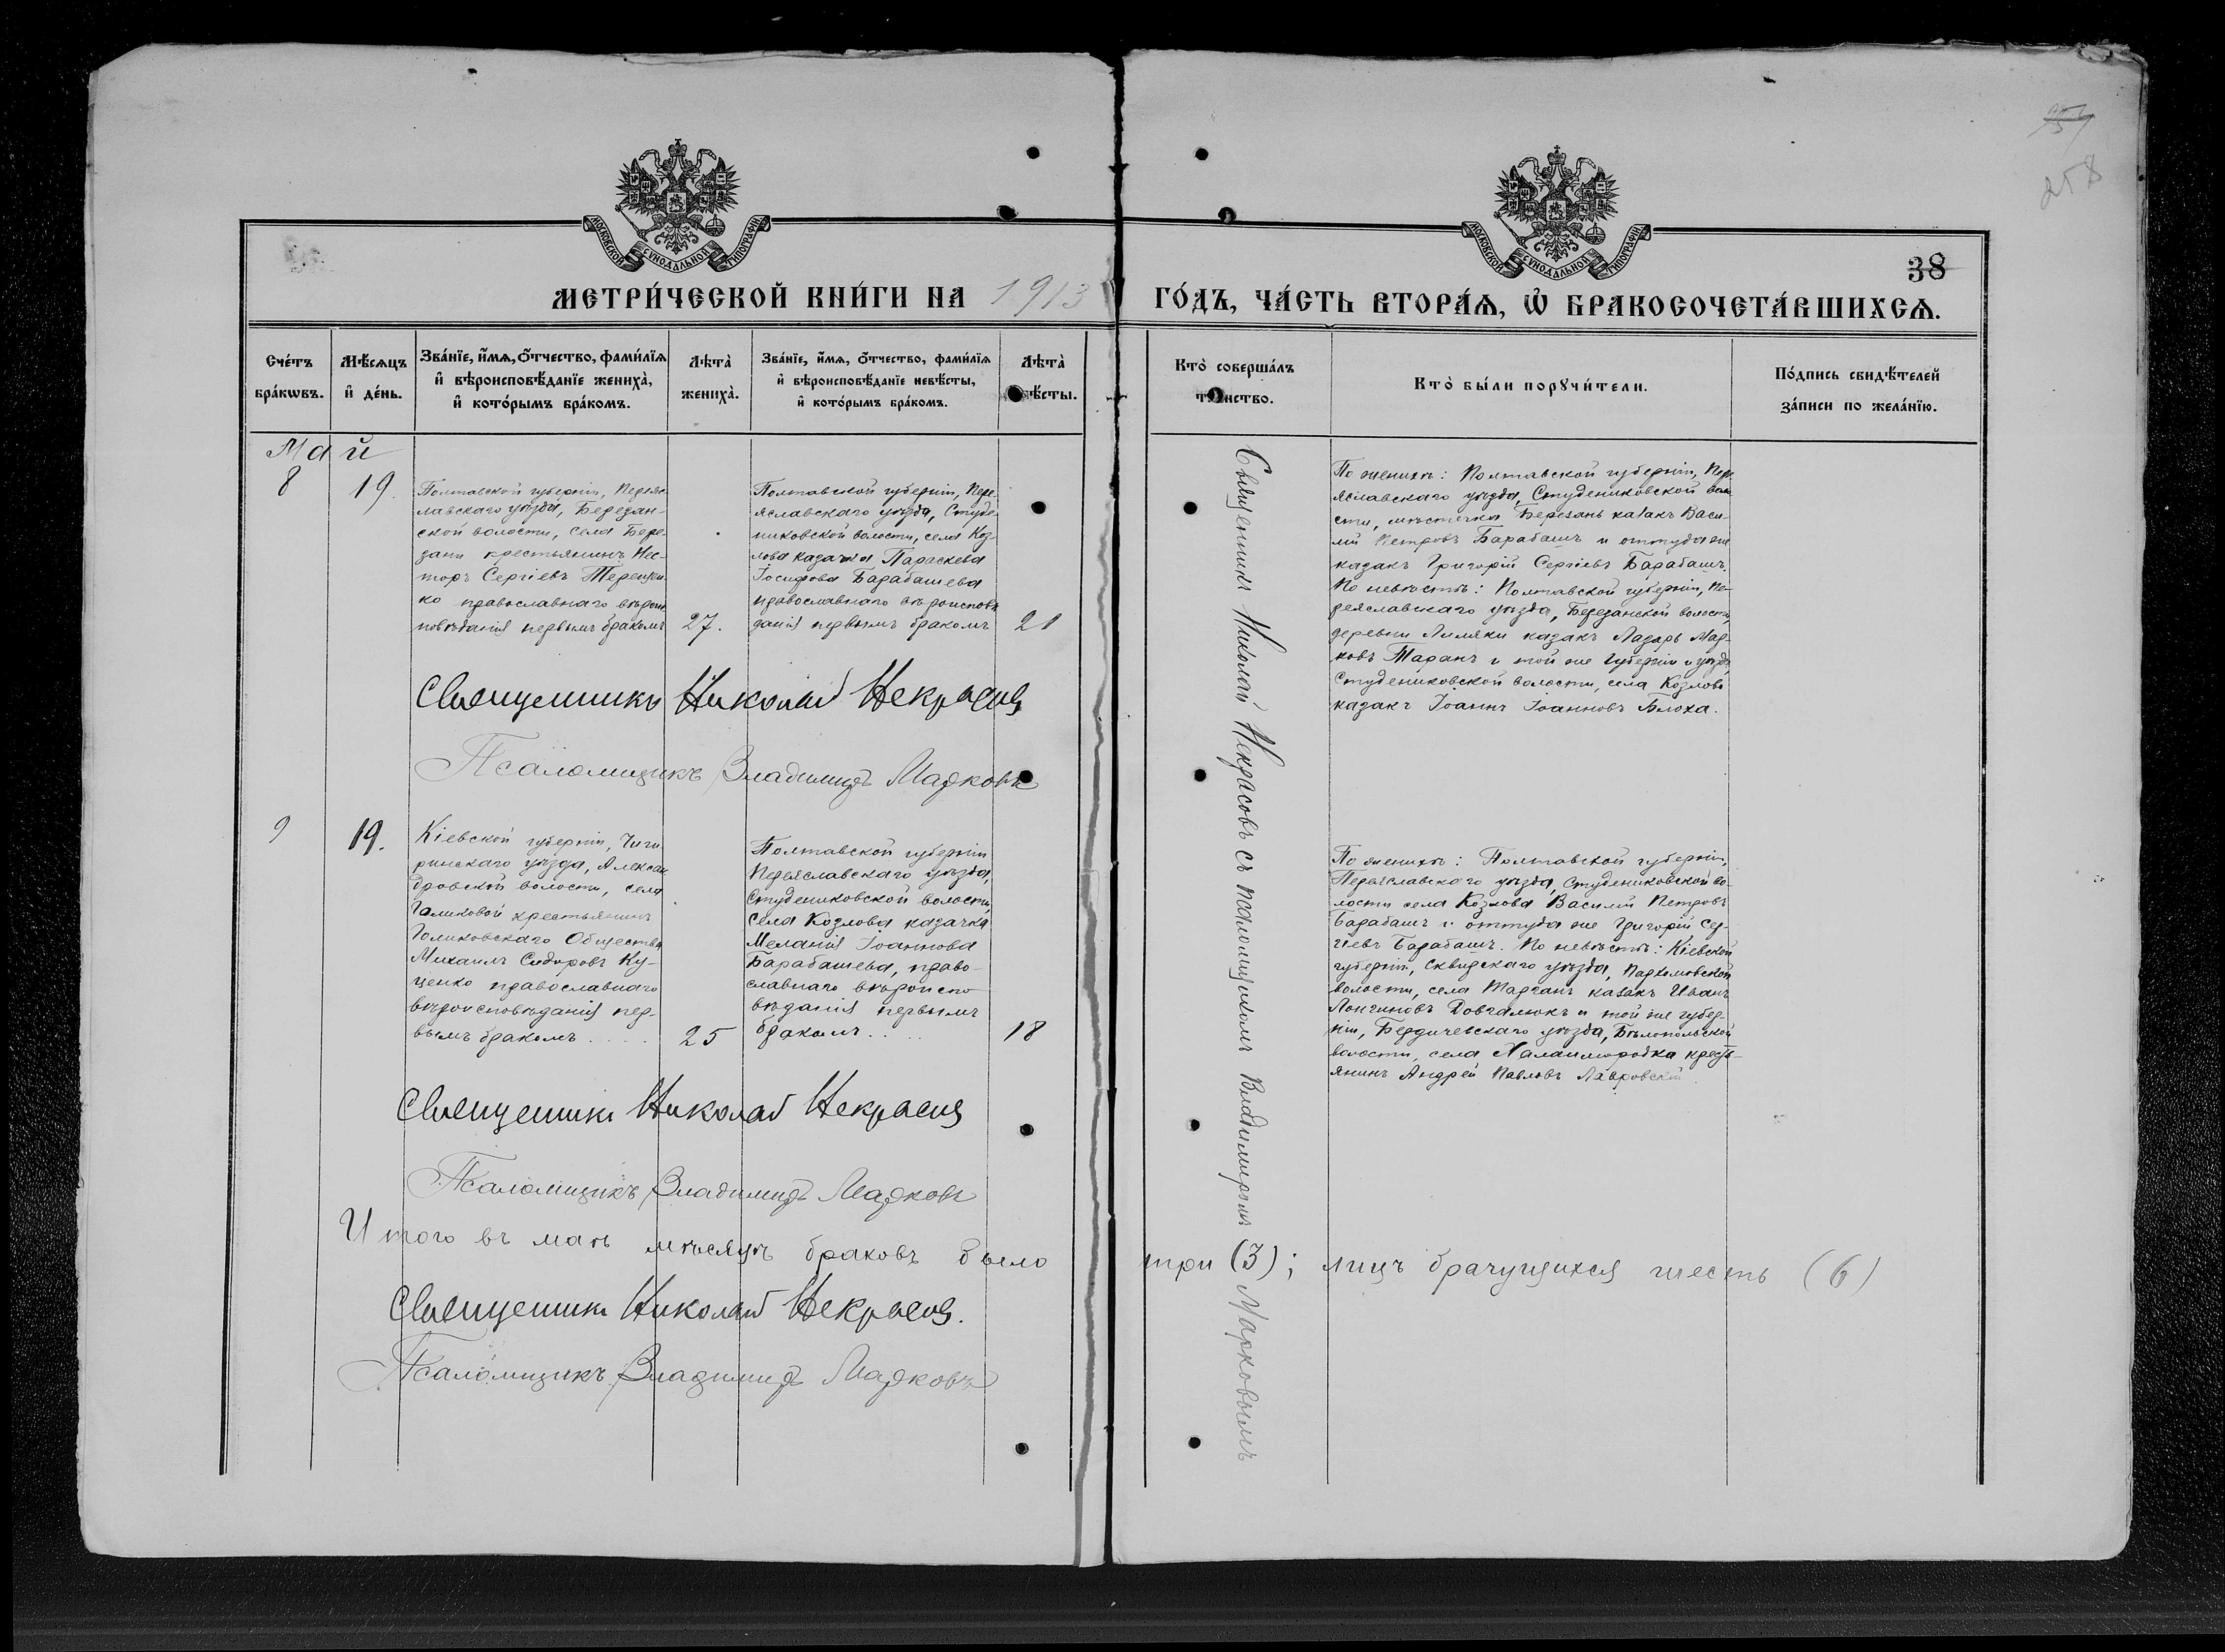 257
258
МОСКОВСКОЙ СѴНОДАЛЬНОЙ ТИПОГРАФІИ
МОСКОВСКОЙ СѴНОДАЛЬНОЙ ТИПОГРАФІИ
38
МЕТРИ́ЧЕСКОЙ КНИ́ГИ НА 1913
ГО́ДЪ, ЧА́СТЬ ВТОРА́Ѧ, Ѡ҆ БРАКОСОЧЕТА́ВШИХСѦ.
Сче́тъ
бра́кѡвъ.
Мѣ́сѧцъ
и҆ де́нь.
Зва́нїе, и҆́мѧ, ѻ҆́тчество, фами́лїѧ
и҆ вѣроисповѣ́данїе жениха̀,
и҆ кото́рымъ бра́комъ.
Лѣта̀
жениха̀.
Зва́нїе, и҆́мѧ, ѻ҆́тчество, фами́лїѧ
и҆ вѣроисповѣ́данїе невѣ́сты,
и҆ кото́рымъ бра́комъ.
Лѣта̀
невѣ́сты.
Кто̀ соверша́лъ
таинство.
Кто̀ бы́ли порꙋчи́тели.
По́дпись свидѣ́телей
за́писи по жела́нїю.
Май
8
19.
Полтавской губерніи, Переяс-
лавскаго уѣзда, Березан-
ской волости, села Бере-
зани крестьянинъ Нес-
торъ Сергіевъ Терещен-
ко православнаго вѣроис-
повѣданія первымъ бракомъ
27.
Полтавской губерніи, Пере-
яславскаго уѣзда, Студе-
никовской волости, села Коз-
лова казачка Параскева
Іосифова Барабашева
православнаго вѣроисповѣ-
данія первымъ бракомъ
21
Священникъ Николай Некрасовъ съ псаломщикомъ Владимиромъ Марковымъ
По женихѣ: Полтавской губерніи, Пере-
яславскаго уѣзда, Студениковской воло-
сти, мѣстечка Березань казакъ Васи-
лій Петровъ Барабашъ и оттуда же
казакъ Григорій Сергіевъ Барабашъ.
По невѣстѣ: Полтавской губерніи, Пе-
реяславскаго уѣзда, Березанской волости,
деревни Лиляки казакъ Лазарь Мар-
ковъ Таранъ и той же губерніи и уѣзда,
Студениковской волости, села Козлова
казакъ Іоаннъ Іоанновъ Блоха.
Священникъ Николай Некрасовъ
Псаломщикъ Владимиръ Марковъ
9
19.
Кіевской губерніи, Чиги-
ринскаго уѣзда, Алексан-
дровской волости, села
Галиковой крестьянинъ
Голиковскаго Общества
Михаилъ Сидоровъ Ку-
ценко православнаго
вѣроисповѣданія пер-
вымъ бракомъ . . . .
25
Полтавской губерніи
Переяславскаго уѣзда,
Студениковской волости,
села Козлова казачка
Меланія Іоаннова
Барабашева, право-
славнаго вѣроиспо-
вѣданія первымъ
бракомъ . . . .
18
По женихѣ: Полтавской губерніи,
Переяславскаго уѣзда, Студениковской во-
лости села Козлова Василій Петровъ
Барабашъ и оттуда же Григорій Сер-
гіевъ Барабашъ. По невѣстѣ: Кіевской
губерніи, Сквирскаго уѣзда, Пархомовской
волости, села Марганъ казакъ Иванъ
Лонгиновъ Довгалюкъ и той же губер-
ніи, Бердичевскаго уѣзда, Бѣлопольской
волости, села Халаимгородка кресть-
янинъ Андрей Павловъ Лавровскій.
Священникъ Николай Некрасовъ
Псаломщикъ Владимиръ Марковъ
Итого въ маѣ мѣсяцѣ браковъ было три (3); лицъ брачущихся шесть (6)
Священникъ Николай Некрасовъ.
Псаломщикъ Владимиръ Марковъ